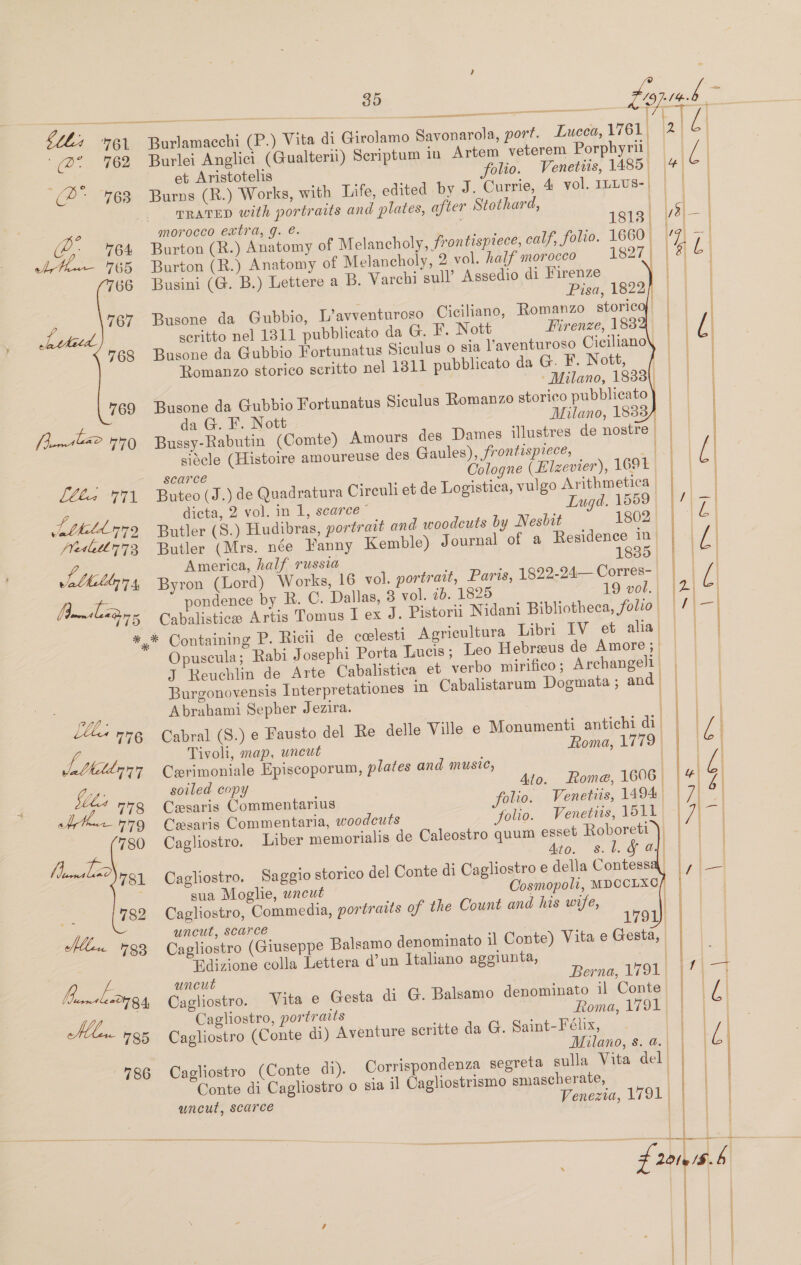 35
£197.14.6
Ellis 761 Burlamacchi (P.) Vita di Girolamo Savonarola, port. Lucca, 1761 2 6
Do 762 Burlei Anglici (Gualterii) Scriptum in Artem veterem Porphyrii
et Aristotelis folio. Venetiis, 1485 4 6
Do 763 Burns (R.) Works, with Life, edited by J. Currie, 4 vol. ILLUS-
TRATED with portraits and plates, after Stothard,
morocco extra, g. e. 1813 18 –
Do 764 Burton (R.) Anatomy of Melancholy, frontispiece, calf, folio. 1660
Arthur 765 Burton (R.) Anatomy of Melancholy, 2 vol. half morocco 1827 8 6
766 Busini (G. B.) Lettere a B. Varchi sull' Assedio di Firenze
Pisa, 1822
767 Busone da Gubbio, L'avventuroso Ciciliano, Romanzo storico
scritto nel 1311 pubblicato da G. F. Nott Firenze, 1832
768 Busone da Gubbio Fortunatus Siculus o sia l'aventuroso Ciciliano
Romanzo storico scritto nel 1311 pubblicato da G. F. Nott,
Milano, 1833
769 Busone da Gubbio Fortunatus Siculus Romanzo storico pubblicato
da G. F. Nott Milano, 1833
770 Bussy-Rabutin (Comte) Amours des Dames illustres de nostre
siècle (Histoire amoureuse des Gaules), frontispiece,
scarce Cologne (Elzevier), 1691 6
Ellis 771 Buteo (J.) de Quadratura Circuli et de Logistica, vulgo Arithmetica
dicta, 2 vol. in 1, scarce Lugd. 1559 1 –
772 Butler (S.) Hudibras, portrait and woodcuts by Nesbit 1802 6
773 Butler (Mrs. née Fanny Kemble) Journal of a Residence in
America, half russia 1835 6
774 Byron (Lord) Works, 16 vol. portrait, Paris, 1822-24—Corres-
pondence by R. C. Dallas, 3 vol. ib. 1825 19 vol. 2 6
775 Cabalisticæ Artis Tomus I ex J. Pistorii Nidani Bibliotheca, folio 1 –
*** Containing P. Ricii de cœlesti Agricultura Libri IV et alia
Opuscula; Rabi Josephi Porta Lucis; Leo Hebræus de Amore;
J Reuchlin de Arte Cabalistica et verbo mirifico; Archangeli
Burgonovensis Interpretationes in Cabalistarum Dogmata; and
Abrahami Sepher Jezira.
Ellis 776 Cabral (S.) e Fausto del Re delle Ville e Monumenti antichi di
Tivoli, map, uncut Roma, 1779 6
777 Cærimoniale Episcoporum, plates and music,
soiled copy 4to. Romæ, 1606 4 6
Ellis 778 Cæsaris Commentarius folio. Venetiis, 1494 7
Arthur 779 Cæsaris Commentaria, woodcuts folio. Venetiis, 1511 7 –
780 Cagliostro. Liber memorialis de Caleostro quum esset Roboreti
4to. s. l. & a.
781 Cagliostro. Saggio storico del Conte di Cagliostro e della Contessa
sua Moglie, uncut Cosmopoli, MDCCLXC 1 –
782 Cagliostro, Commedia, portraits of the Count and his wife,
uncut, scarce 1791
Allen 783 Cagliostro (Giuseppe Balsamo denominato il Conte) Vita e Gesta,
Edizione colla Lettera d'un Italiano aggiunta,
uncut Berna, 1791 1 –
784 Cagliostro. Vita e Gesta di G. Balsamo denominato il Conte
Cagliostro, portraits Roma, 1791 6
Allen 785 Cagliostro (Conte di) Aventure scritte da G. Saint-Félix,
Milano, s. a. 6
786 Cagliostro (Conte di). Corrispondenza segreta sulla Vita del
Conte di Cagliostro o sia il Cagliostrismo smascherate,
uncut, scarce Venezia, 1791